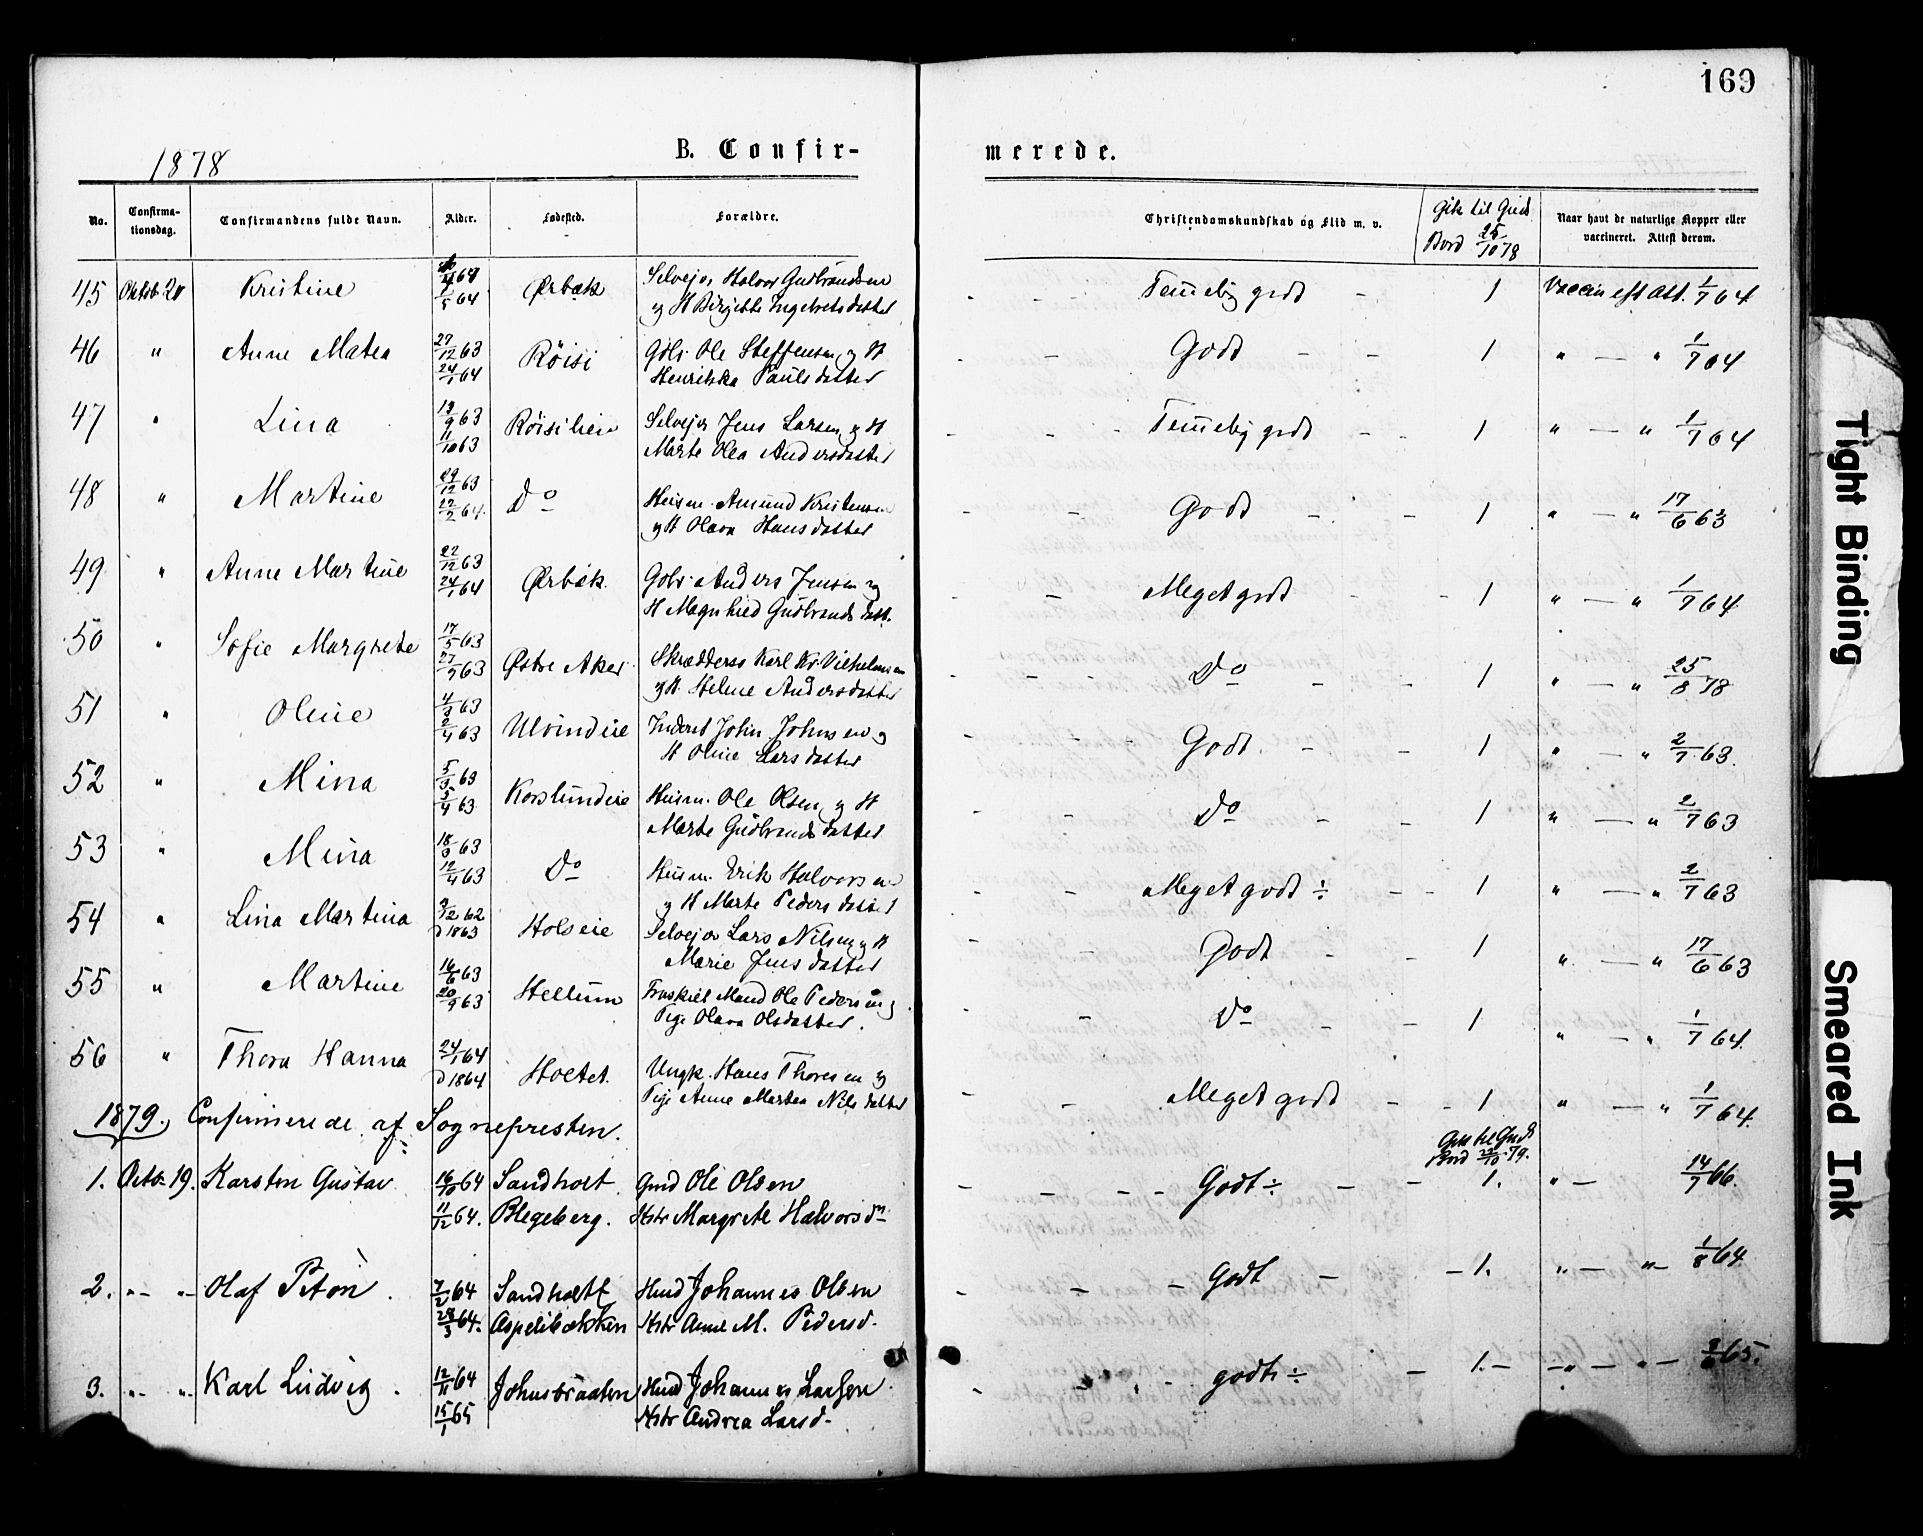 169
1878 B. Confir- merede.
No. Confirma-tionsdag. Confirmandens fulde Navn. Alder. Fødested. Forældre. Christendomskundskab og Flid m. v. Gik til Guds Bord 25/10 78 Naar havt de naturlige Kopper eller vaccineret. Attest derom.
45 Oktob 20 Kristine 64 Ørbæk Selveier Halvor Gudbrandsen Temelig godt - 1 Vaccin eft Att. 1/7 64
64 og H Birgitte Ingebretsdatter
46 " Anne Matea 27/12 63 Røisi Gbr. Ole Steffensen og H - - Godt - - 1 " — " 1/7 64
24/1 64 Henrikka Paulsdatter
47 " Lina 13/9 63 Røisilien Selveier Jens Larsen og H - - - Temelig godt - - 1 " — " 1/7 64
11/10 63 Marte Olea Andersdatter
48 " Martine 29/12 63 Do Husm. Amund Kristensen - - Godt - - 1 " — " 17/6 63
22/2 64. og H Olava Hansdatter
49 " Anne Martine 22/12 63 Ørbæk Gbr. Anders Jensen og - - Meget godt - - 1 " — " 1/7 64
24/1 64 H Magnhild Gudbrandsdatt.
50 " Sofie Margrete 17/5 63 Østre Aker Skrædders Karl Kr. Vilhelmsen - - Do - - 1 " — " 25/8 78
27/9 63 og H. Helene Andersdatter
51 " Oline 4/3 63 Inderst John Johnsen og - - Godt. - - 1 " — " 2/7 63.
2/4 63 H Oline Larsdatter
52 " Mina 5/3 63 Korslundeie Husm. Ole Olsen og H - Do - - 1 " — " 2/7 63
5/4 63 Marte Gudbrandsdatter
53 " Mina 18/3 63 Do Husm. Erik Halvorsen - - Meget godt ÷ - - 1 " — " 2/7 63
12/4 63 og H Marte Pedersdatter
54 " Lina Martina 3/12 62 Holseie Selveier Lars Nilsen og H - - Godt - - 1 " — " 17/6 63
D 1863 Marie Jensdatter
55 " Martine 16/6 63 Hellum Fraskilt Mand Ole Pedersen og - - Do - - 1 " — " 1/7 64.
20/9 63 Pige Olava Olsdatter.
56 " Thora Hanna 24/1 64 Holtet. Ungk. Hans Thoresen og - - Meget godt - - 1 " — " 1/7 64.
D 1864 Pige Anne Martea Nilsdatter
1879. Confirmerede af Sognepresten. Gik til Guds Bord 22/10 79.
1. Octbr 19. Karsten Gustav 16/10 64 Sandholt Gmd Ole Olsen - - - - Godt ÷ - - 1. " — 14/7 66.
11/12 64. Blegeberg. Kstr Margrete Halvorsdn
2. " " Olaf Peton . 7/2 64 Sandholtt Hmd Johannes Olsen - - - Godt - - 1. " — " 1/8 64.
28/3 64. Aspelibækken Kstr Anne M. Pedersd.
3. " " Karl Ludvig . 12/11 64 Johnsbraaten Hmd Johannes Larsen - - - godt ÷ - 1. - - " — " — 65.
15/1 65 Kstr Andrea Larsd.
Tight Binding
Smeared Ink